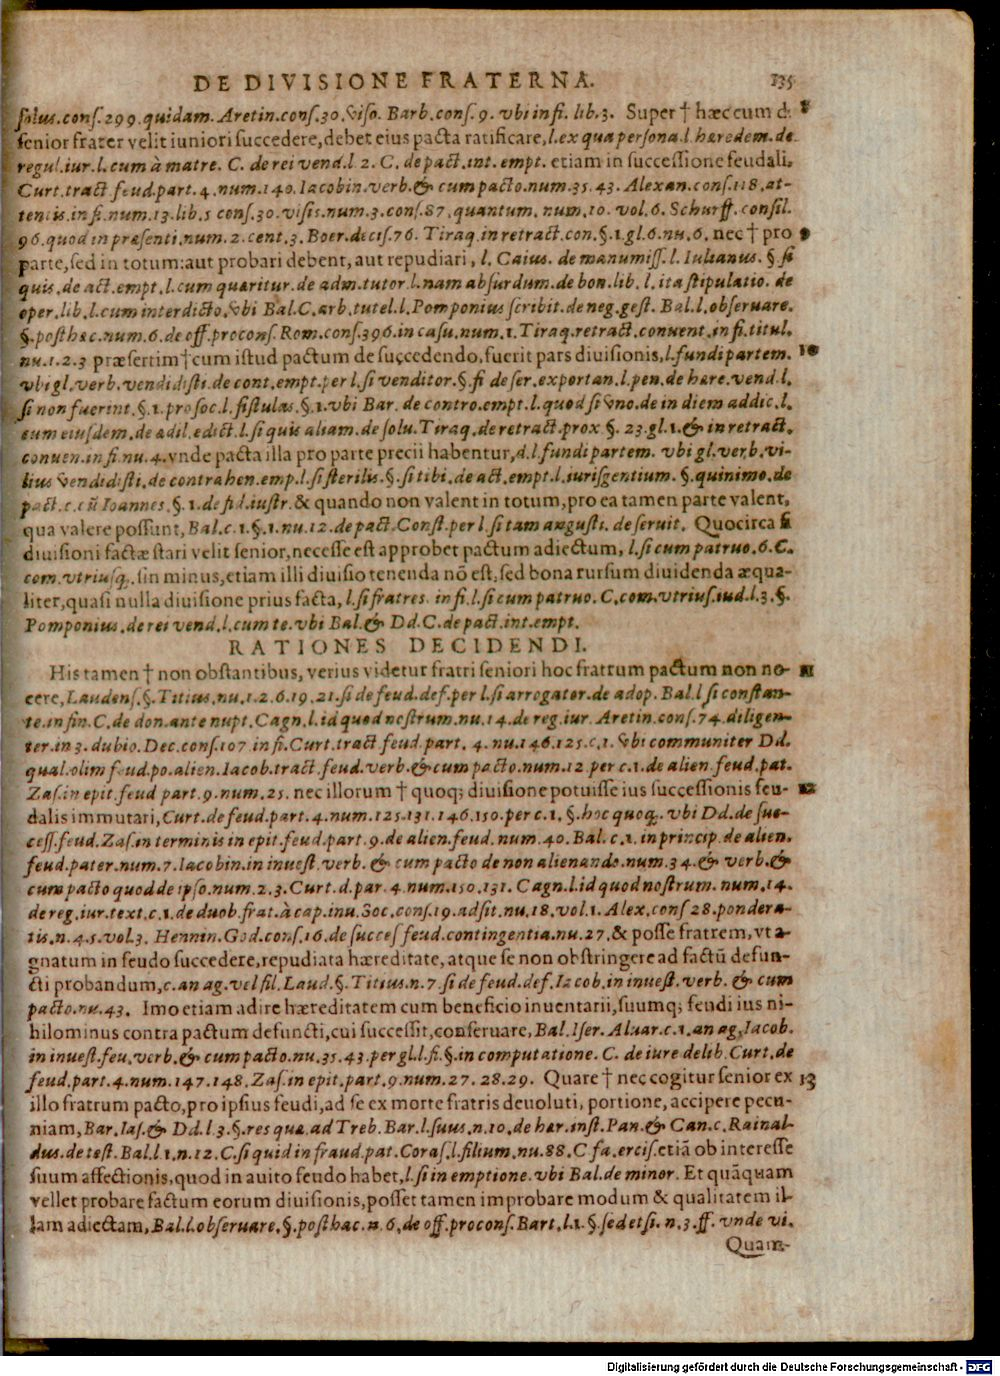 DE DIVISIONE FRATERNA. 135
solus.cons.299.quidam. Aretin.cons.30.viso. Barb.cons.9. vbi in fi. lib.3. Super † hæc cum
senior frater velit iuniori succedere, debet eius pacta ratificare, l.ex qua persona. l. hæredem.de
regul.iur.l.cum à matre. C. de rei vend.l 2. C. de pact.int. empt. etiam in successione feudali.
Curt.tract feud.part.4.num.140. Iacobin.verb.& cum pacto.num.35.43. Alexan.cons.118.at-
tentis.in fi.num.13.lib.5 cons.30.visis.num.3.cons.87.quantum. num.10. vol.6. Schurff. consil.
96.quod in præsenti.num.2.cent.3. Boer.decis.76. Tiraq.in retract.con.§.1.gl.6.nu.6. nec † pro 9
parte, sed in totum: aut probari debent, aut repudiari, l. Caius. de manumiss.l. Iulianus. §. si
quis.de act.empt.l.cum quæritur.de adm.tutor.l.nam absurdum.de bon.lib. l. ita stipulatio. de
oper.lib.l.cum interdicto.vbi Bal.C.arb.tutel.l.Pomponius scribit.de neg.gest. Bal.l.obseruare.
§.post hac.num.6.de off.procons.Rom.cons.396.in casu.num.1.Tiraq.retract.conuent.in fi.titul.
nu.1.2.3 præsertim † cum istud pactum de succedendo, fuerit pars diuisionis, l.fundi partem. 10
vbi gl.verb.vendidisti.de cont.empt.per l.si venditor.§.fi de ser.exportan.l.pen.de hære.vend.l.
si non fuerint.§.1.pro soc.l.fistulas.§.1.vbi Bar.de contro.empt.l.quod si vno.de in diem addic.l.
cum eiusdem.de ædil.edict.l.si quis aliam.de solu.Tiraq.de retract.prox §.23.gl.1.& in retract.
conuen.in fi.nu.4.vnde pacta illa pro parte precii habentur, d.l.fundi partem. vbi gl.verb.vi-
lius vendidisti.de contrahen.emp.l.si sterilis.§.si tibi.de act.empt.l.iurisgentium. §.quinimo.de
pact.c.cū Ioannes.§.1.de fid.instr. & quando non valent in totum, pro ea tamen parte valent,
qua valere possunt, Bal.c.1.§.1.nu.12.de pact.Const.per l.si tam angusti. de seruit. Quocirca si
diuisioni factæ stari velit senior, necesse est approbet pactum adiectum, l.si cum patruo.6.C.
com.vtriusq;. sin minus, etiam illi diuisio tenenda nō est, sed bona rursum diuidenda æqua-
liter, quasi nulla diuisione prius facta, l.si fratres. in fi.l.si cum patruo. C.com.vtrius.iud.l.3.§.
Pomponius.de rei vend.l.cum te.vbi Bal.& Dd.C.de pact.int.empt.
RATIONES DECIDENDI.
His tamen † non obstantibus, verius videtur fratri seniori hoc fratrum pactum non no- 11
cere, Laudens.§.Titius.nu.1.2.6.19.21.si de feud.def.per l.si arrogator.de adop.Bal.l.si constan-
te.in fin.C.de don.ante nupt.Cagn.l.id quod nostrum.nu.14.de reg.iur. Aretin.cons.74.diligen-
ter.in 3.dubio.Dec.cons.107 in fi.Curt.tract feud.part. 4.nu.146.125.c.1.vbi communiter Dd.
qual.olim feud.po.alien.Iacob.tract.feud.verb.& cum pacto.num.12 per c.1.de alien.feud.pat.
Zas.in epit.feud part.9.num.25. nec illorum † quoq; diuisione potuisse ius successionis feu- 12
dalis immutari, Curt.de feud.part.4.num.125.131.146.150.per c.1. §.hoc quoq;. vbi Dd.de suc-
cess.feud.Zas.in terminis in epit.feud.part.9.de alien.feud.num.40.Bal.c.1. in princip.de alien.
feud.pater.num.7.Iacobin.in inuest.verb. & cum pacto de non alienando.num.34.& verb.&
cum pacto quod de ipso.num.2.3.Curt.d.par.4.num.150.131.Cagn.l.id quod nostrum. num.14.
de reg.iur.text.c.1.de duob.frat.à cap.inu.Soc.cons.19.adsit.nu.18.vol.1.Alex.cons 28.pondera-
tis.n.4.5.vol.3. Hennin.God.cons.16.de succes feud.contingentia.nu.27. & posse fratrem, vt a-
gnatum in feudo succedere, repudiata hæreditate, atque se non obstringere ad factū defun-
cti probandum, c.an ag.vel fil.Laud.§.Titius.n.7.si de feud.def.Iacob.in inuest.verb. & cum
pacto.nu.43. Imo etiam adire hæreditatem cum beneficio inuentarii, suumq; feudi ius ni-
hilominus contra pactum defuncti, cui successit, conseruare, Bal.Iser.Aluar.c.1.an ag.Iacob.
in inuest.feu.verb.& cum pacto.nu.35.43.per gl.l.fi.§.in computatione. C. de iure delib.Curt.de
feud.part.4.num.147.148.Zas.in epit.part.9.num.27.28.29. Quare † nec cogitur senior ex 13
illo fratrum pacto, pro ipsius feudi, ad se ex morte fratris deuoluti, portione, accipere pecu-
niam, Bar.Ias.& Dd.l.3.§.res quæ.ad Treb.Bar.l.suus.n.10.de hær.inst.Pan.& Can.c.Rainal-
dus.de test.Bal.l 1.n.12.C.si quid in fraud.pat.Coras.l.filium.nu.88.C fa.ercis. etiā ob interesse
suum affectionis, quod in auito feudo habet, l.si in emptione.vbi Bal.de minor. Et quāquam
vellet probare factum eorum diuisionis, posset tamen improbare modum & qualitatem il-
lam adiectam, Bal.l.obseruare.§.post hac.n.6.de off.procons.Bart.l.1.§.sed etsi. n.3.ff. vnde vi.
Quam-
Digitalisierung gefördert durch die Deutsche Forschungsgemeinschaft - DFG